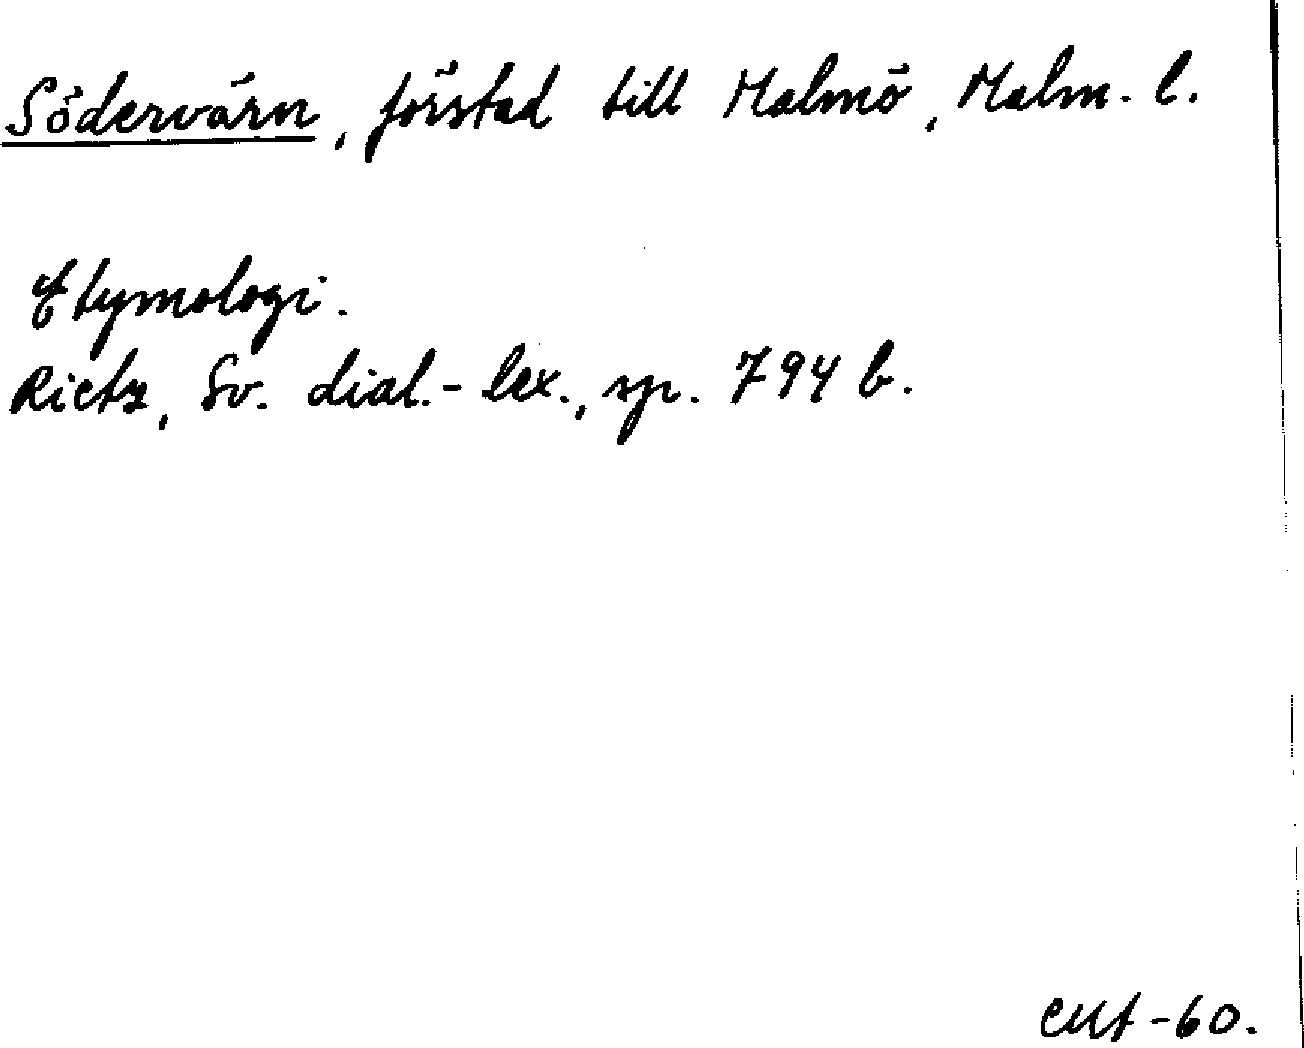 Södervärn, förstad till Malmö, Malm. l.
Etymologi.
Rietz, Sv. dial.-lex., sp. 794 b.
-60.